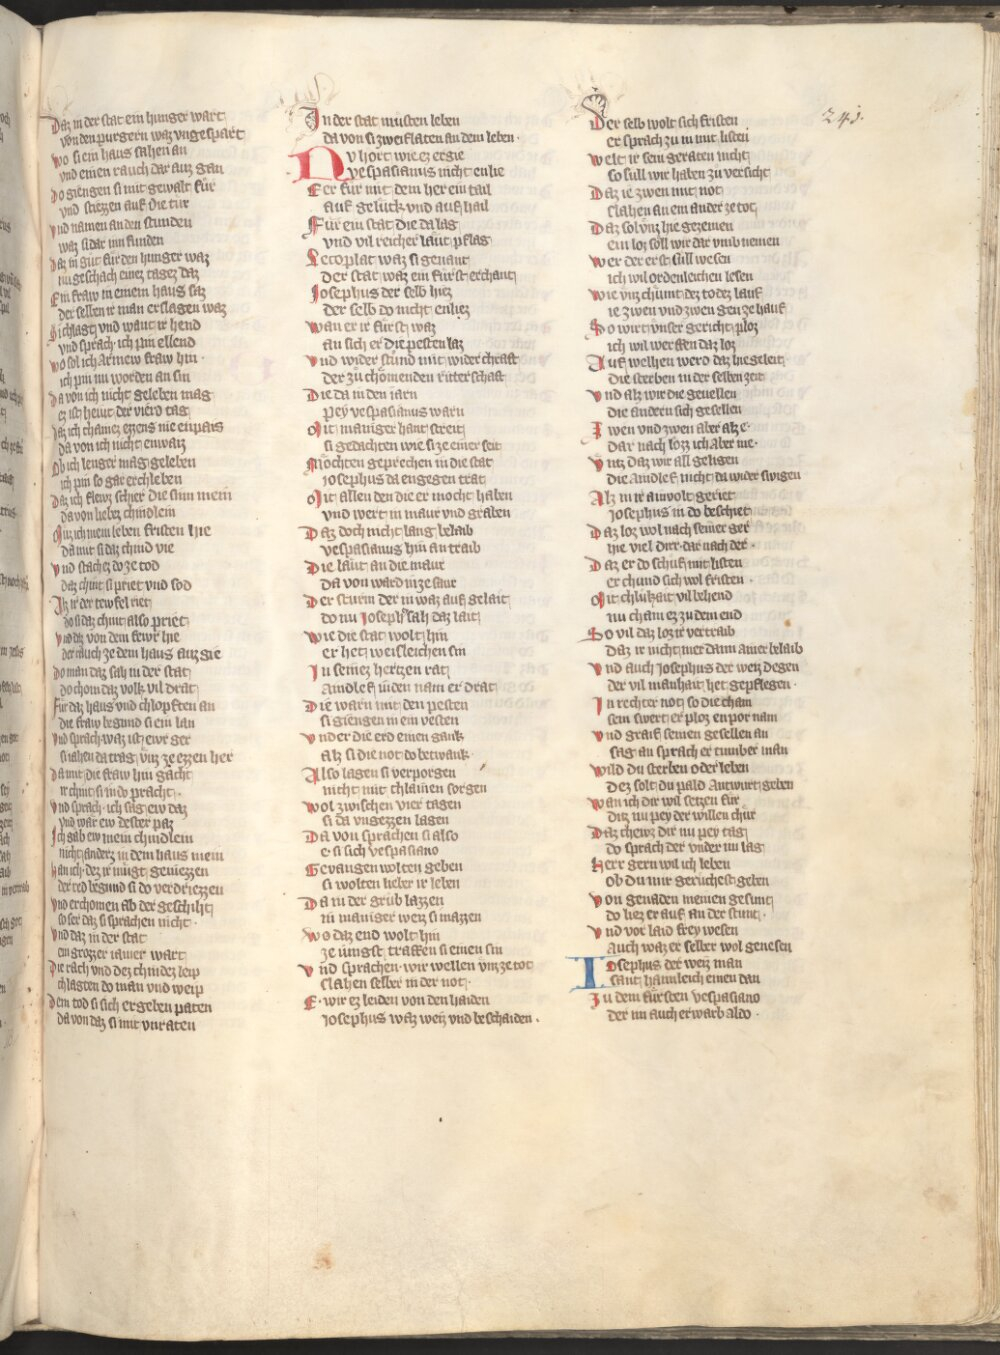 243.
Daz in der stat ein hunger wart
von den purgern waz vngespart
Wo si ein haus sahen an
vnd einen rauch dar auz gan
Do giengen si mit gewalt für
vnd stiezzen auf die tür
Vnd namen an den stunden
waz si dar inn funden
Daz in güt für den hunger waz
nu geschach eines tagez daz
Ein fraw in einem haus saz
der selben ir man erslagen waz
Si chlagt vnd want ir hend
vnd sprach ich pin ellend
Wo sol ich armew fraw hin
ich pin nu worden an sin
Da von ich nicht geleben mag
ez ist hewt der vierd tag
Daz ich chainez ezzens nie enpais
da von ich nicht enwaiz
Ob ich lenger mag geleben
ich pin so gar erchleben
Daz ich flewz schier die sinn mein
da von liebez chindlein
Muz ich mein leben fristen hie
da mit si daz chind vie
Vnd stach ez do ze tod
daz chint si priet vnd sod
Alz ir der tewfel riet
do si daz chint also priet
Vnd daz von dem fewr hie
der rauch ze dem haus auz gie
Do man daz sah in der stat
do chom daz volk vil drat
Für daz haus vnd chlopften an
die fraw begund si ein lan
Vnd sprach waz ist ewr ger
si iahen da trag vnz ze ezzen her
Da mit die fraw hin gacht
ir chint si in do pracht
Vnd sprach ich sag ew daz
vnd war ew dester paz
Ich gab ew mein chindlein
nicht anderz in dem haus mein
Han ich dez ir mügt geniezzen
der red begund si do verdriezzen
Vnd erchomen ab der geschiht
so ser daz si sprachen nicht
Vnd daz in der stat
ein grozzer iamer wart
Die rach vnd dez chindez leip
chlagten do man vnd weip
Dem tod si sich ergeben paten
da von daz si mit vnraten
In der stat müsten leben
da von si zweiflaten an dem leben
Nv hort wie ez ergie
vespasianus nicht enlie
Er für mit dem her ein tail
auf gelück vnd auf hail
Für ein stat die da lag
vnd vil reicher läut pflag
Lecoplat waz si genant
der stat waz ein fürst erchant
Josephus der selb hiez
der selb do nicht enliez
Wan er ir fürst waz
an sich er die pesten laz
Vnd wider stund mit wider chraft
der zü chömenden ritterschaft
Die da in den iarn
pey vespasianus warn
Mit maniger hant streit
si gedachten wie si ze einer seit
Möchten geprechen in die stat
iosephus da engegen trat
Mit allen den die er mocht haben
vnd wert in maur vnd graben
Daz doch nicht lang belaib
vespasianus hin an traib
Die läut an die maur
da von ward in ze saur
Der sturm der in waz auf gelait
do nu Josephus sah daz lait
Wie die stat wolt hin
er het weisleichen sin
In seinez hertzen rat
aindlef inden nam er drat
Die warn mit den pesten
si giengen in ein vesten
Vnder die erd einen gank
alz si die not do betwank
Also lagen si verporgen
nicht mit chlainen sorgen
Wol zwischen vier tagen
si da vngezzen lagen
Da von sprachen si also
e si sich vespasiano
Gevangen wolten geben
si wolten lieber ir leben
Da in der grüb lazzen
in maniger weiz si mazzen
Wo daz end wolt hin
ze iungst traffen si einen sin
Vnd sprachen wir wellen vnz ze tot
slahen selber in der not
E wir ez leiden von den haiden
iosephus waz weiz vnd beschaiden
Der selb wolt sich fristen
er sprach zu in mit listen
Welt ir sein geraten nicht
so süll wir haben zu versicht
Daz ie zwen mit not
slahen an ein ander ze tot
Daz sol vnz hie gezemen
ein loz söll wir dar vmb nemen
Wer der erst süll wesen
ich wil ordenleichen lesen
Wie vnz chümt dez todez lauf
ie zwen vnd zwen gen ze hauf
So wirt vnser gericht ploz
ich wil werffen daz loz
Auf welhen werd daz hie geleit
die sterben in der selben zeit
Vnd alz wir die geuellen
die andern sich gesellen
Zwen vnd zwen aber alz e
dar nach lozz ich aber me
Vntz daz wir all geligen
die aindlef nicht da wider swigen
Alz in ir ainvolt geriet
Josephus in do beschiet
Daz loz wol nach seiner ger
hie viel dirr dar nach der
Daz er do schuf mit listen
er chund sich wol fristen
Mit chlükait vil behend
nu cham ez zu dem end
So vil daz loz ir vertraib
daz ir nicht mer dann ainer belaib
Vnd auch Josephus der weiz degen
der vil manhait het gepflegen
In rechter not so die cham
sein swert er ploz enpor nam
Vnd graif seinen gesellen an
sag an sprach er tummer man
Wild du sterben oder leben
dez solt du pald antwurt geben
Wan ich dir wil setzen für
ditz nu pey der willen chür
Daz chewz dir nu pey tag
do sprach der vnder im lag
Herr gern wil ich leben
ob du mir geruchest geben
Von genaden meinen gesunt
do liez er auf an der stunt
Vnd vor laid frey wesen
auch waz er selber wol genesen
Iosephus der weiz man
sant haimleich einen dan
Zu dem fürsten vespasiano
der im auch erwarb aldo